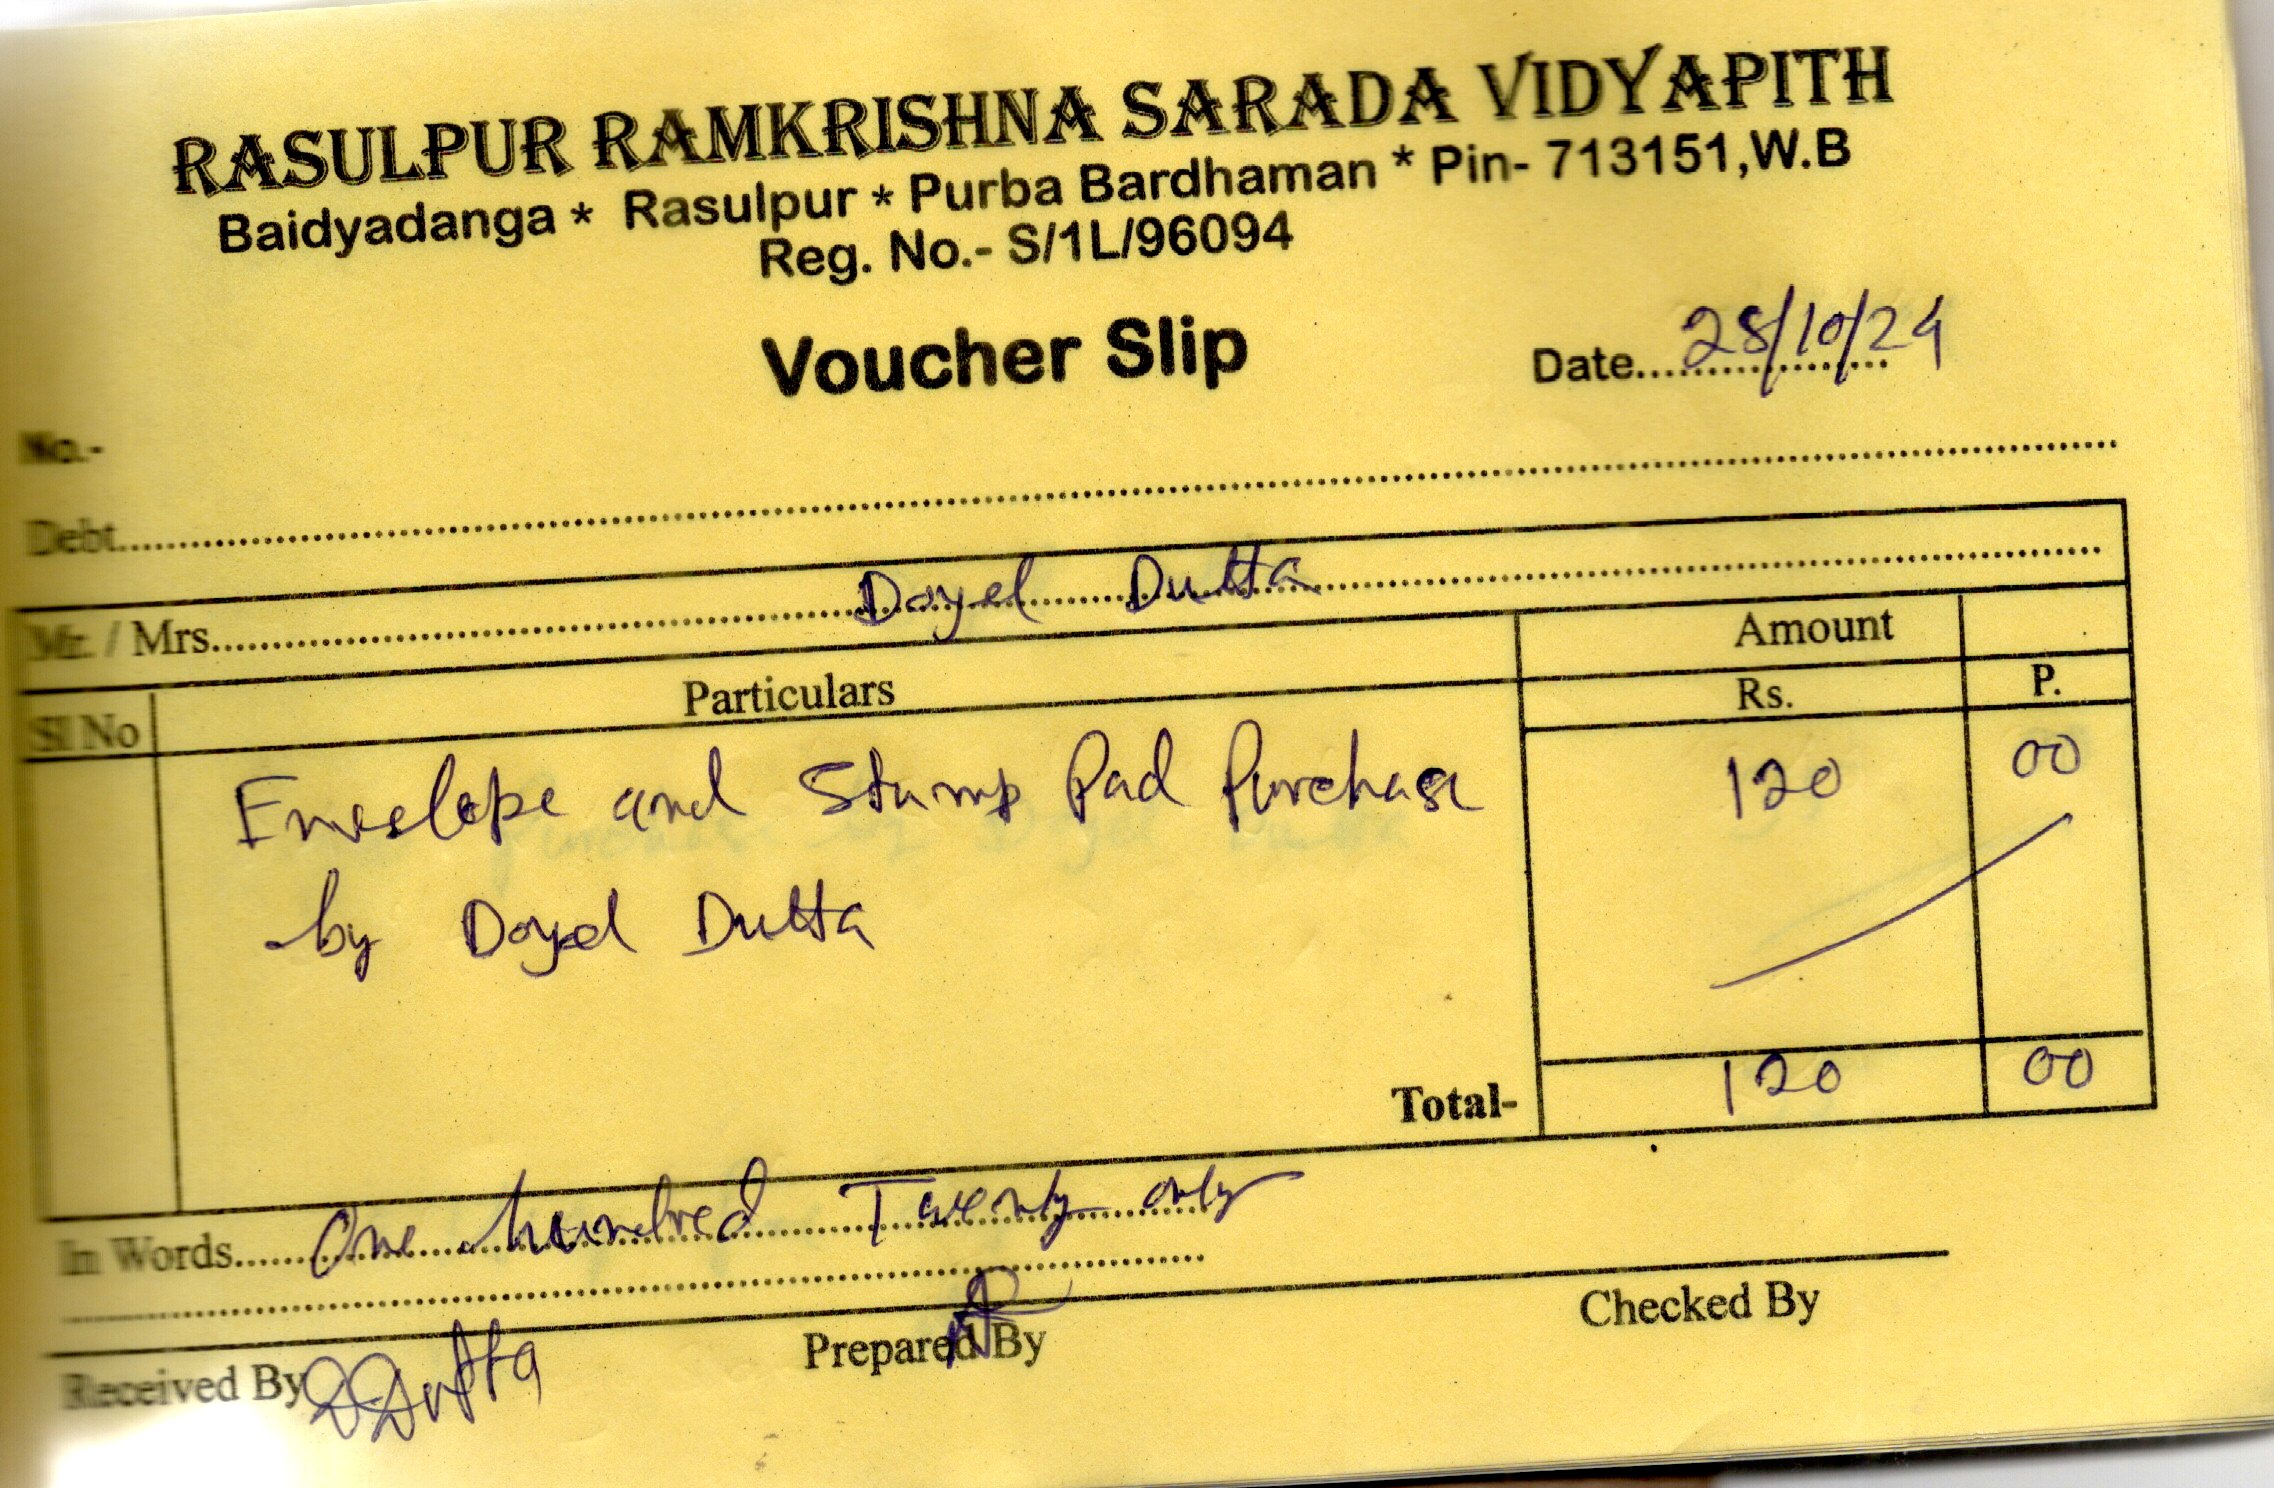 RASULPUR RAMKRISHNA SARADA VIDYAPITH
Baidyadanga * Rasulpur * Purba Bardhaman * Pin- 713151,W.B
Reg. No.- S/1L/96094
Voucher Slip
Date 28/10/24
No.-
Debt
Mr. / Mrs. Doyel Dutta
Sl No Particulars Amount
Rs. P.
Envelope and Stump Pad Purchase 120 00
by Doyel Dutta
Total- 120 00
In Words One hundred Twenty only
Received By DDutta Prepared By Checked By